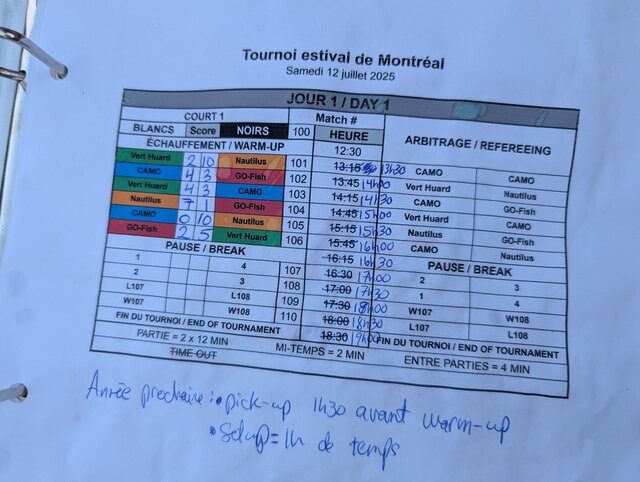 Tournoi estival de Montréal
Samedi 12 juillet 2025
JOUR 1 / DAY 1
COURT 1 Match # ARBITRAGE / REFEREEING
BLANCS Score NOIRS 100 HEURE
ÉCHAUFFEMENT / WARM-UP 12:30
Vert Huard 2 10 Nautilus 101 13:15 13h30 CAMO CAMO
CAMO 4 3 GO-Fish 102 13:45 14h00 Vert Huard Nautilus
Vert Huard 4 3 CAMO 103 14:15 14h30 CAMO GO-Fish
Nautilus 7 1 GO-Fish 104 14:45 15h00 Vert Huard CAMO
CAMO 0 10 Nautilus 105 15:15 15h30 Vert Huard GO-Fish
GO-Fish 2 5 Vert Huard 106 15:45 16h00 CAMO Nautilus
PAUSE / BREAK 16:15 16h30 PAUSE / BREAK
1 4 107 16:30 17h00 2 3
2 3 108 17:00 17h30 1 4
L107 L108 109 17:30 18h00 W107 W108
W107 W108 110 18:00 18h30 L107 L108
FIN DU TOURNOI / END OF TOURNAMENT 18:30 19h00 FIN DU TOURNOI / END OF TOURNAMENT
PARTIE = 2 x 12 MIN MI-TEMPS = 2 MIN ENTRE PARTIES = 4 MIN
TIME OUT
Année prochaine : • pick-up 1h30 avant warm-up
• Setup = 1h de temps